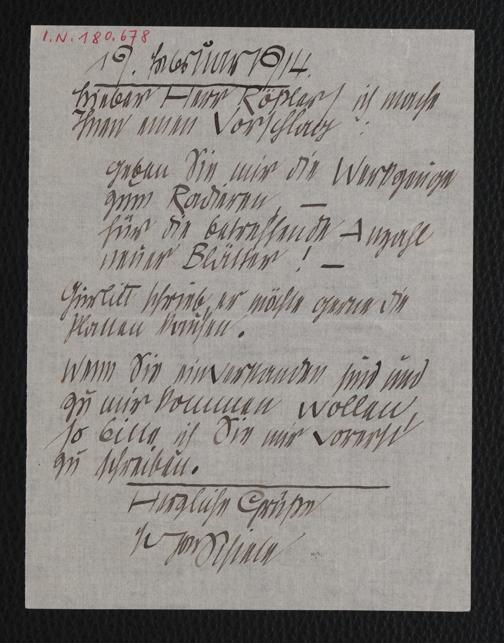 I.N. 180.678
19. Februar 1914.
Lieber Herr Rößler! ich mache
Ihnen einen Vorschlag :
geben Sie mir die Werkzeuge
zum Radieren, —
für die betreffende Anzahl
neuer Blätter! —
Gurlitt schrieb, er möchte gerne die
Platten kaufen.
Wenn Sie einverstanden sind und
zu mir kommen wollen,
so bitte ich Sie mir vorerst
zu schreiben.
Herzliche Grüße
Schiele